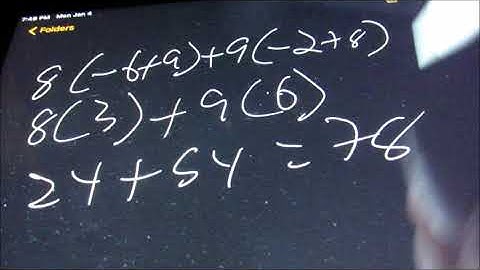 7:48 PM Mon Jan 4
Folders
8(-6+9)+9(-2+8)
8(3)+9(6)
24+54=78